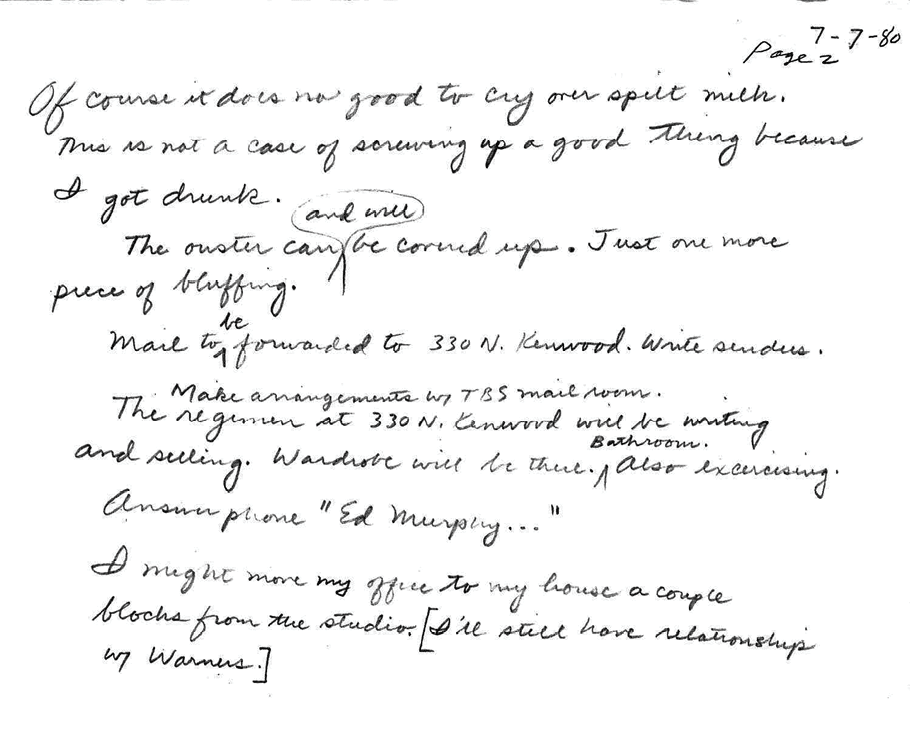 7-7-80
Page 2
Of course it does no good to cry over spilt milk.
This is not a case of screwing up a good thing because
I got drunk.
and will
The ouster can be covered up. Just one more
piece of bluffing.
be
Mail to forwarded to 330 N. Kenwood. Write senders.
Make arrangements w/ TBS mail room.
The regimen at 330 N. Kenwood will be writing
Bathroom.
and selling. Wardrobe will be there. Also excercising.
Answer phone "Ed Murphy..."
I might move my office to my house a couple
blocks from the studio. [I'll still have relationship
w/ Warners.]